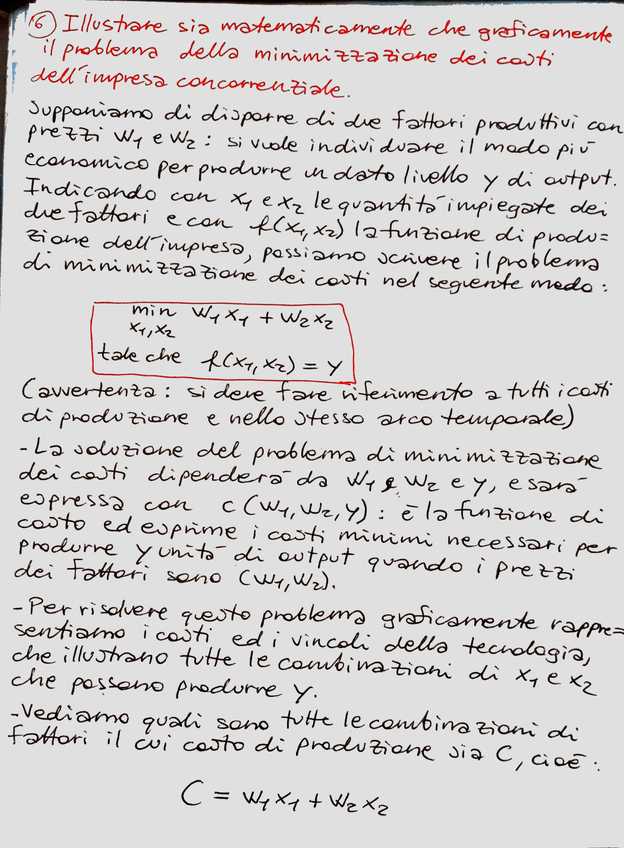 16) Illustrare sia matematicamente che graficamente
il problema della minimizzazione dei costi
dell'impresa concorrenziale.
Supponiamo di disporre di due fattori produttivi con
prezzi w1 e w2 : si vuole individuare il modo più
economico per produrre un dato livello y di output.
Indicando con x1 e x2 le quantità impiegate dei
due fattori e con f(x1,x2) la funzione di produ=
zione dell'impresa, possiamo scrivere il problema
di minimizzazione dei costi nel seguente modo :
min w1x1 + w2x2
x1,x2
tale che f(x1,x2) = y
(avvertenza : si deve fare riferimento a tutti i costi
di produzione e nello stesso arco temporale)
- La soluzione del problema di minimizzazione
dei costi dipenderà da w1 e w2 e y, e sarà
espressa con c (w1,w2,y) : è la funzione di
costo ed esprime i costi minimi necessari per
produrre y unità di output quando i prezzi
dei fattori sono (w1,w2).
- Per risolvere questo problema graficamente rappre=
sentiamo i costi ed i vincoli della tecnologia,
che illustrano tutte le combinazioni di x1 e x2
che possono produrre y.
- Vediamo quali sono tutte le combinazioni di
fattori il cui costo di produzione sia C, cioè :
C = w1x1 + w2x2